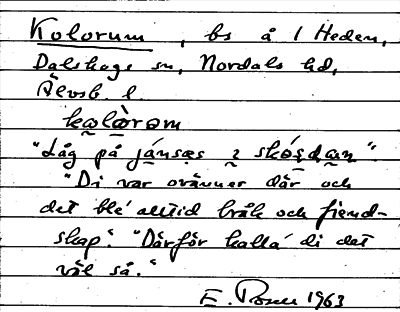 Kolorum, bs å 1 Heden,
Dalskogs sn, Nordals hd,
Älvsb. l.
kolòrom
"Låg på jánsæs skóg
"Di var ovänner där och
det ble' alltid bråk och fiend-
skap." "Därför kalla' di det
väl så."
E. 1963